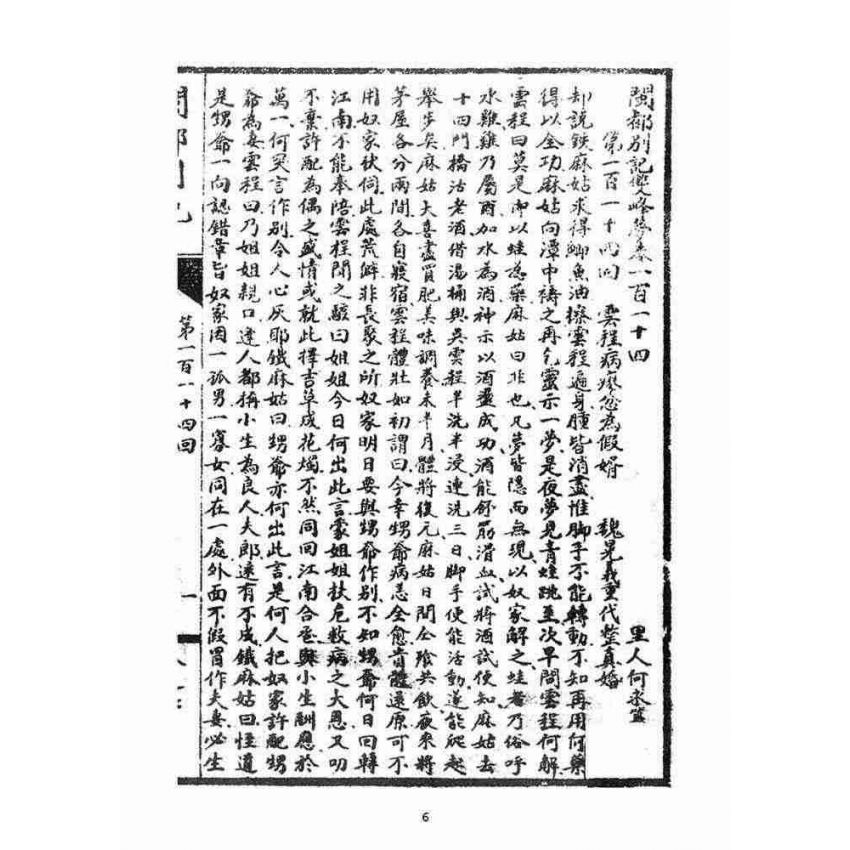 閩都別記雙峰夢卷一百一十四
里人何求纂
第一百一十四回　雲程病瘳忽為假婿　魏晃義重代整真婚
却說鉄麻姑求得鯽魚油擦雲程遍身腫皆消盡惟脚手不能轉動不知再用何藥
得以全功麻姑向潭中禱之再乞靈示一夢是夜夢見青蛙跳至次早問雲程何解
雲程曰莫是即以蛙為藥麻姑曰非也凡夢皆隱而無現以奴家解之蛙者乃俗呼
水雞雞乃屬酉加水為酒神示以酒靈成功酒能舒筋滑血試將酒試便知麻姑去
十四門橋沽老酒借湯桶與吳雲程半洗半浸連洗三日脚手便能活動遂能爬起
舉步矣麻姑大喜盡買肥美味調養未半月體將復元麻姑日間仝飧共飲夜來將
茅屋各分兩間各自寢宿雲程體壯如初謂曰今幸甥爺病恙全愈貴體還原可不
用奴家伏伺此處荒僻非長聚之所奴家明日要與甥爺作別不知甥爺何日回轉
江南不能奉陪雲程聞之駭曰姐姐今日何出此言蒙姐姐扶危救病之大恩又叨
不棄許配為偶之盛情或就此擇吉草成花燭不然同回江南合巹與小生酬應於
萬一何突言作別令人心灰耶鐵麻姑曰甥爺亦何出此言是何人把奴家許配甥
爺為妻雲程曰乃姐姐親口逢人都稱小生為良人夫郎還有不成鐵麻姑曰怪道
是甥爺一向認錯章旨奴家因一孤男一寡女同在一處外面不假冒作夫妻必生
閩都別記
第一百一十四回
一
6